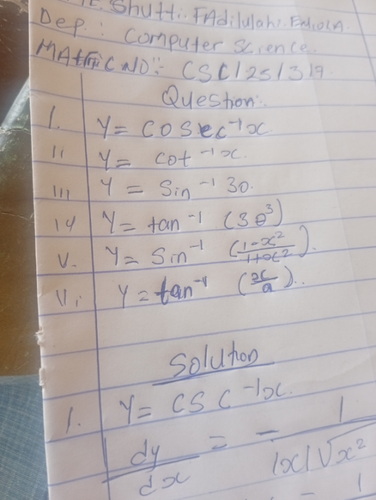 Shutti FAdilulah Eniola
Dep: Computer Science.
MATRIC NO:- CSC/25/317
Question:.
I. Y = COSec⁻¹x
ii Y = cot⁻¹x.
iii Y = Sin⁻¹ 30.
iv Y = tan⁻¹ (3θ³)
v. Y = Sin⁻¹ (1-x²/1+x²).
vi Y = tan⁻¹ (x/a).
Solution
1. Y = CSC⁻¹x.
dy/dx = - 1/|x|√x²
- 1